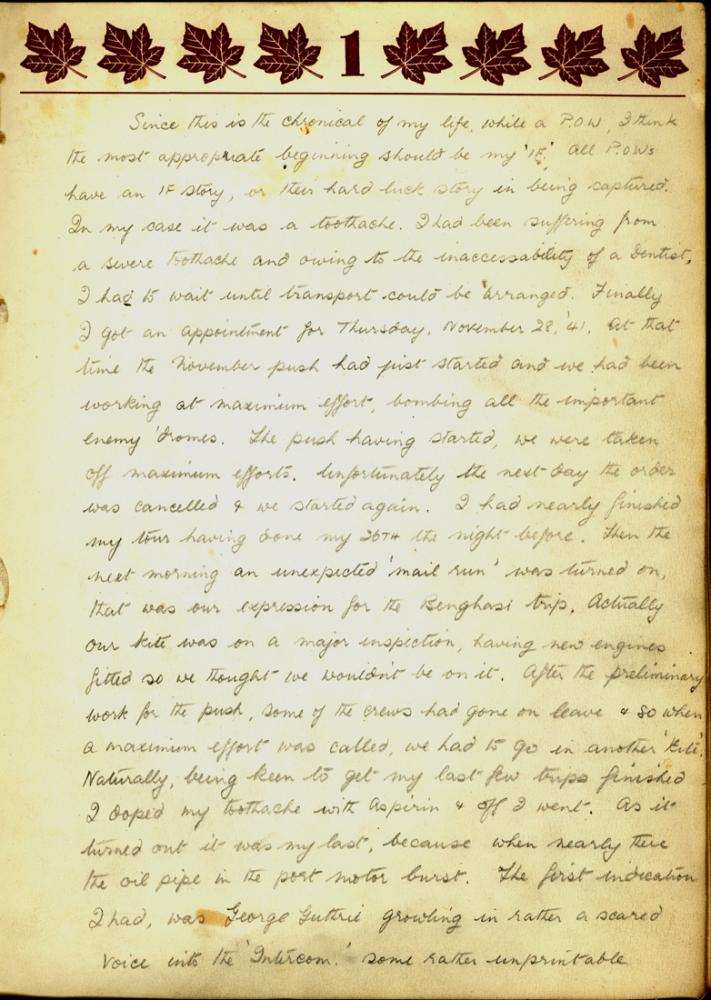 1
Since this is the chronical of my life, while a P.O.W, I think
the most appropriate beginning should be my 'IF'. All P.O.Ws
have an IF story, or their hard luck story in being captured.
In my case it was a toothache. I had been suffering from
a severe toothache and owing to the inaccessability of a Dentist,
I had to wait until transport could be arranged. Finally
I got an appointment for Thursday, November 28, '41. At that
time the November push had just started and we had been
working at maximum effort, bombing all the important
enemy 'dromes. The push having started, we were taken
off maximum efforts. Unfortunately the next day the order
was cancelled & we started again. I had nearly finished
my tour having done my 36TH the night before. Then the
next morning an unexpected 'mail run' was turned on,
that was our expression for the Benghasi trip. Actually
our kite was on a major inspection, having new engines
fitted so we thought we wouldn't be on it. After the preliminary
work for the push, some of the crews had gone on leave & so when
a maximum effort was called, we had to go in another 'kite'.
Naturally, being keen to get my last few trips finished
I doped my toothache with Aspirin & off I went. As it
turned out it was my last, because when nearly there
the oil pipe in the port motor burst. The first indication
I had, was George Guthrie growling in rather a scared
voice into the 'Intercom.' some rather unprintable